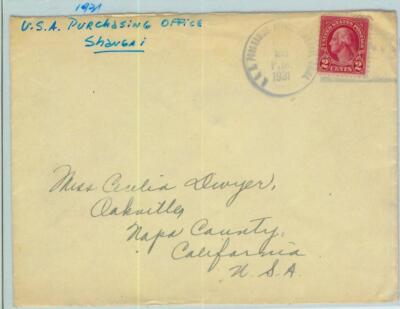 1931
U.S.A. Purchasing Office
Shangai
U.S.
P.M.
1931
UNITED STATES POSTAGE
2 CENTS 2
Miss Cecilia Dwyer,
Oakville,
Napa County,
California
U.S.A.